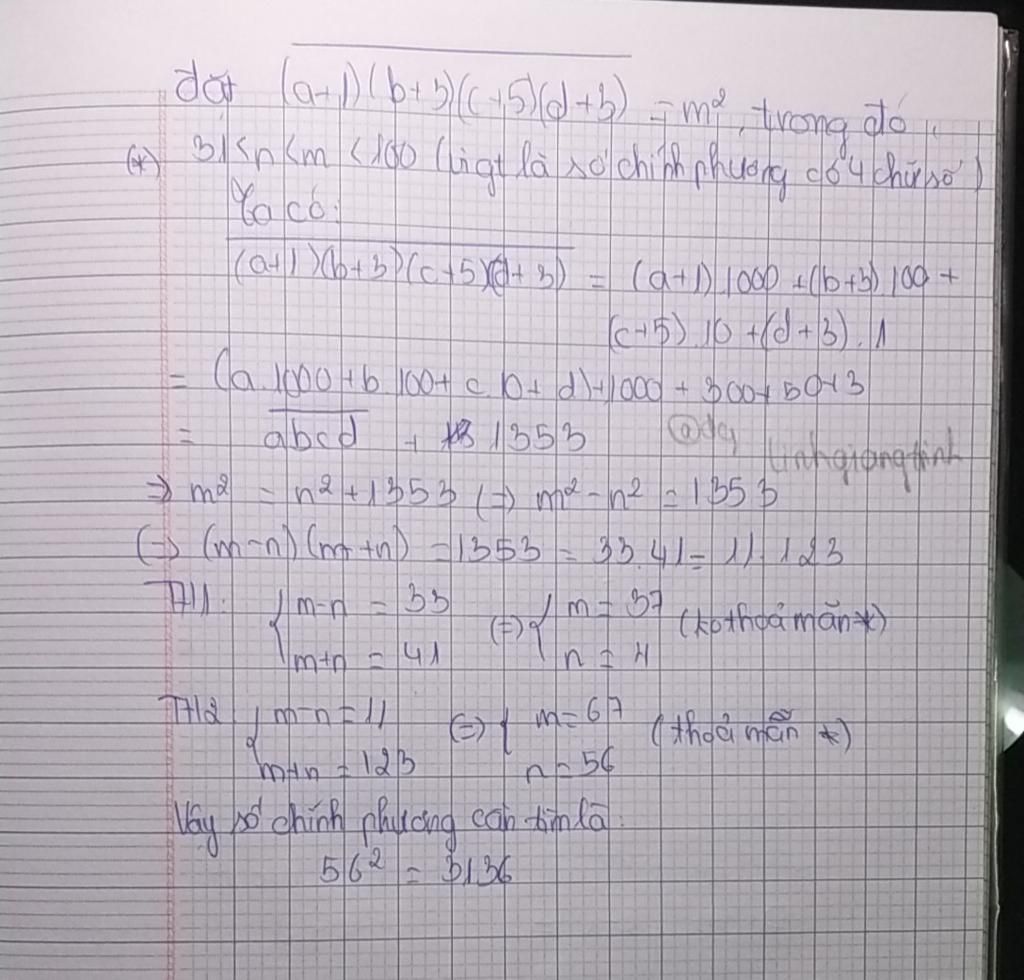 đặt (a+1)(b+3)(c+5)(d+3) = m², trong đó
(*) 31<n<m<100 (là số chính phương có 4 chữ số)
Ta có:
(a+1)(b+3)(c+5)(d+3) = (a+1).1000 + (b+3).100 +
(c+5).10 + (d+3).1
= (a.1000+b.100+c.10+d)+1000+300+50+3
= abcd + 1353 @dq
linhgiangtinh
=> m² = n² + 1353 (=) m² - n² = 1353
(=) (m-n)(m+n) = 1353 = 33.41 = 11.123
TH1: { m-n = 33 (=) { m = 37 (ko thoả mãn *)
m+n = 41 n = 4
TH2 { m-n = 11 (=) { m = 67 (thoả mãn *)
m+n = 123 n = 56
Vậy số chính phương cần tìm là:
56² = 3136